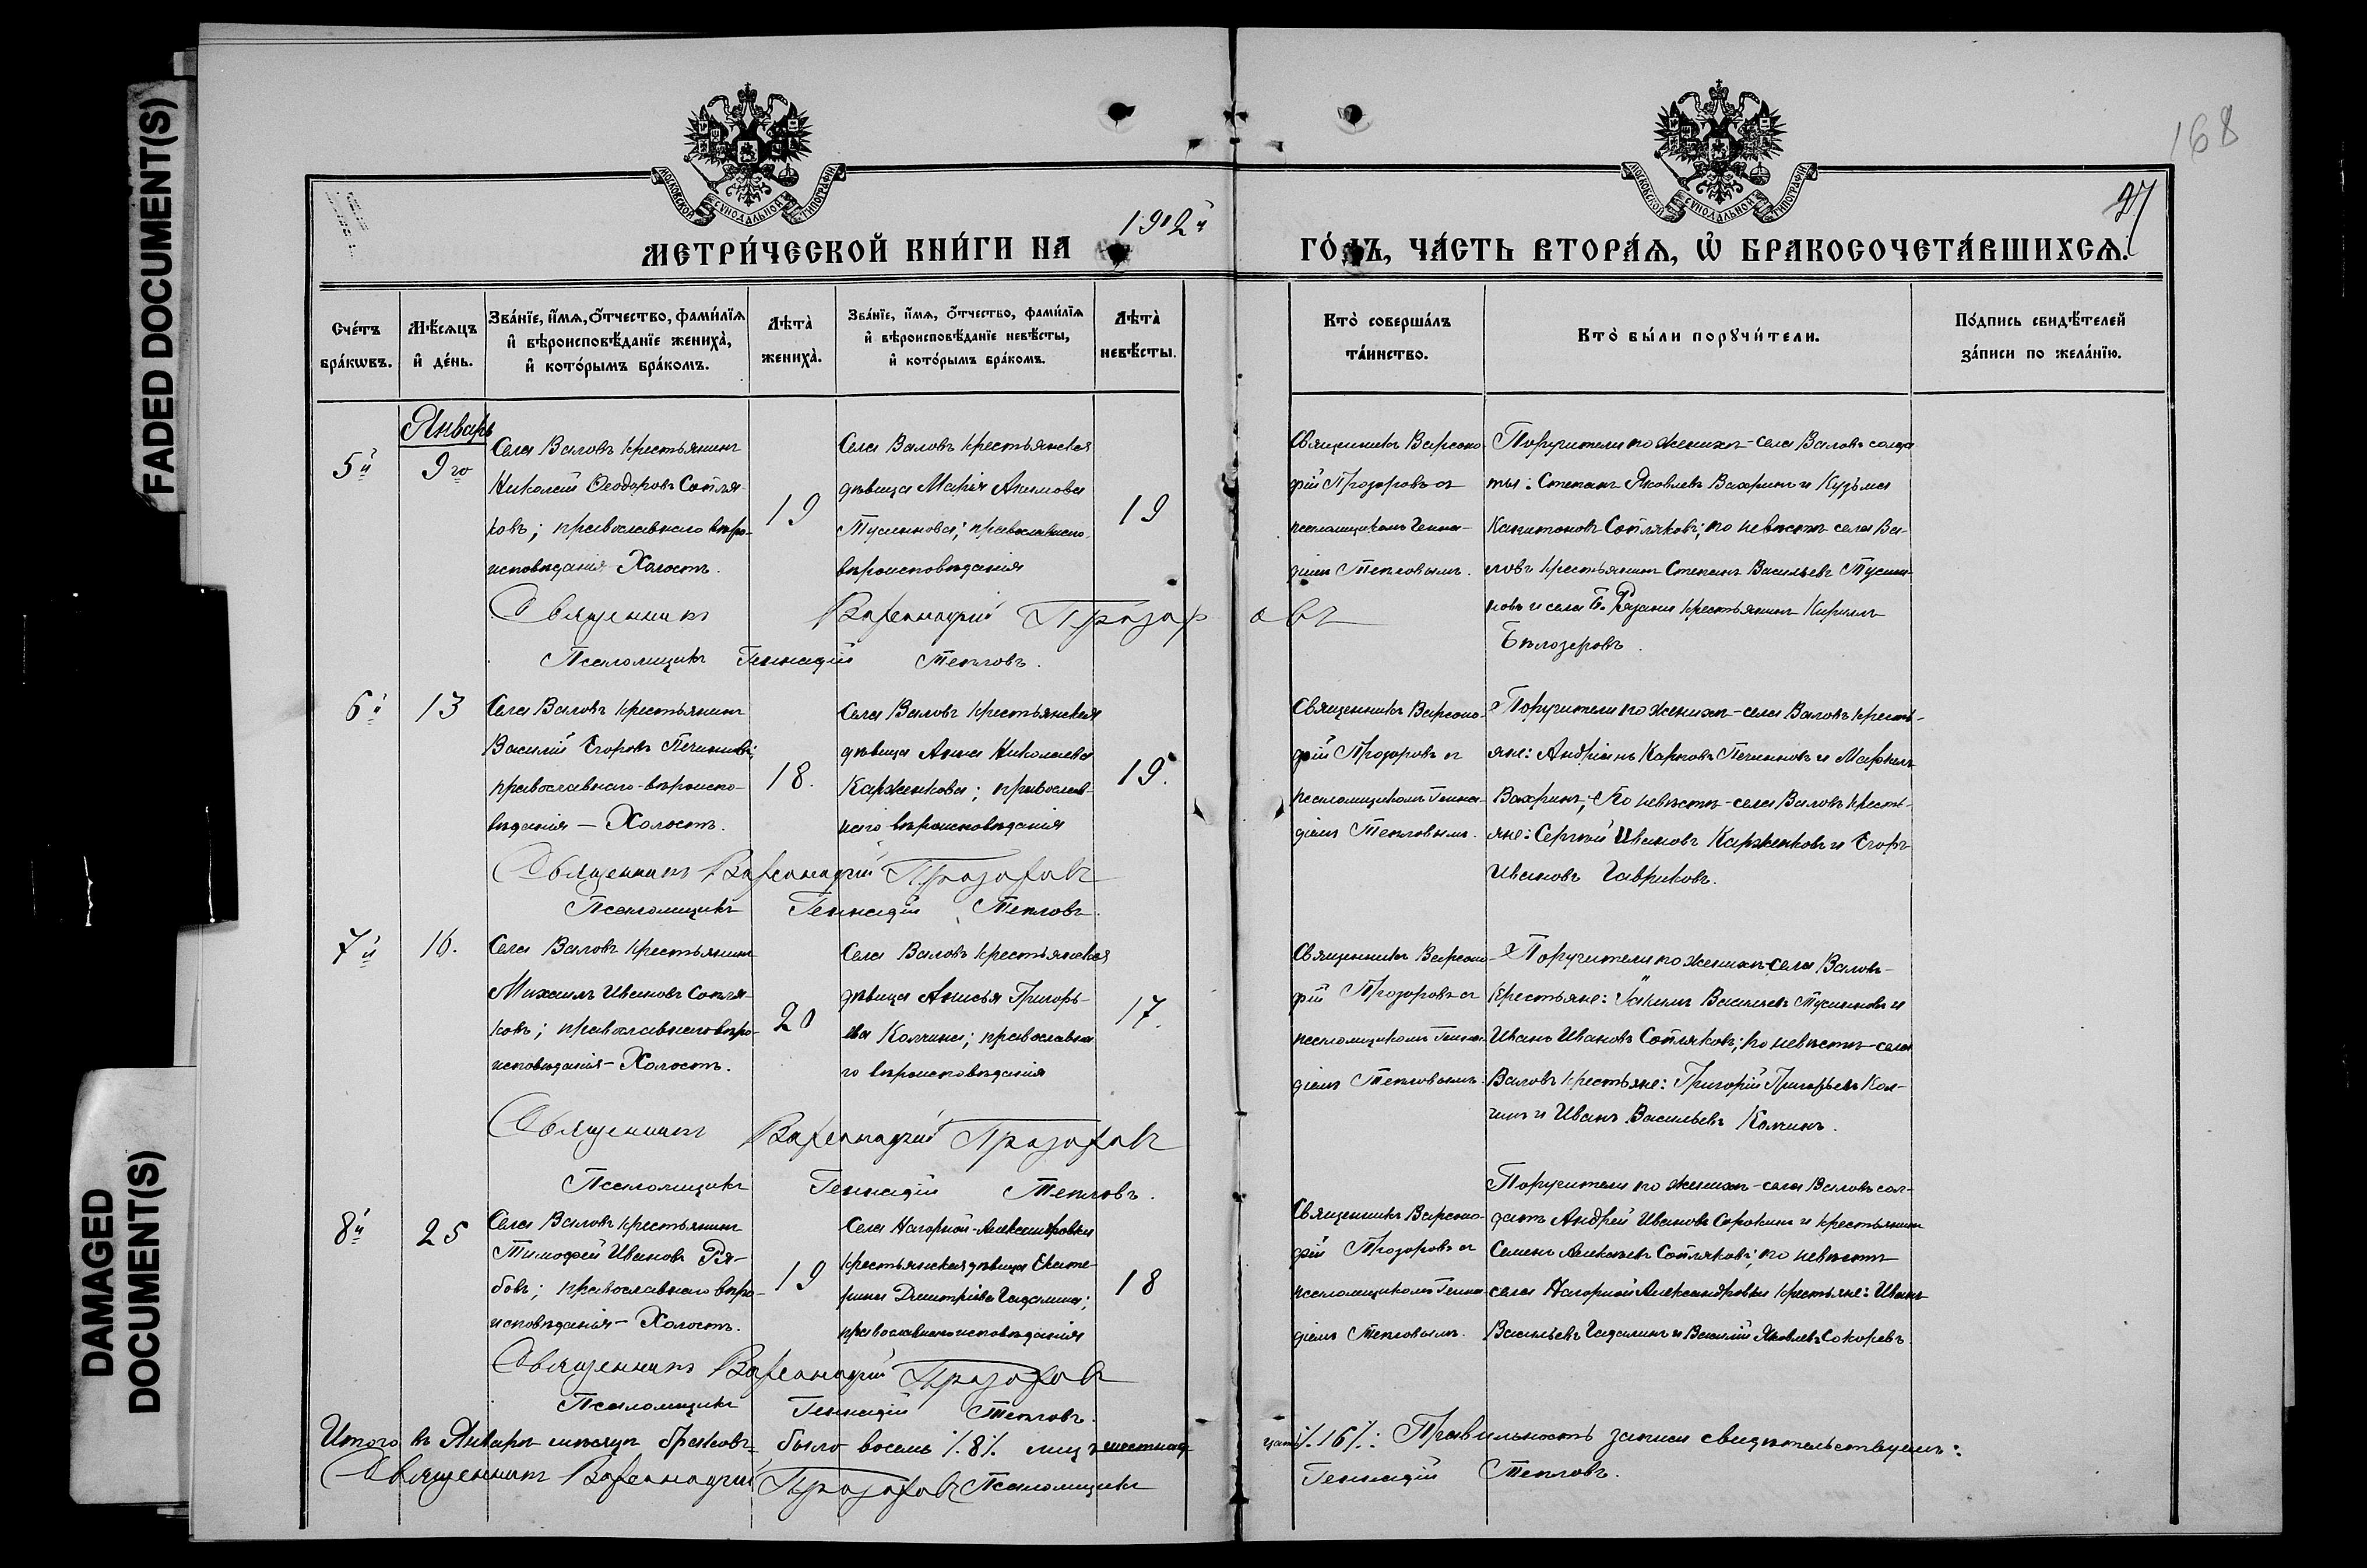 FADED DOCUMENT(S)
DAMAGED
DOCUMENT(S)
168
27
МОСКОВСКОЙ СѴНОДАЛЬНОЙ ТИПОГРАФІИ
МОСКОВСКОЙ СѴНОДАЛЬНОЙ ТИПОГРАФІИ
МЕТРИ́ЧЕСКОЙ КНИ́ГИ НА 1912й ГО́ДЪ, ЧА́СТЬ ВТОРА́Ѧ, Ѡ҆ БРАКОСОЧЕТА́ВШИХСѦ.
Сче́тъ
бра́кѡвъ.
Мѣ́сѧцъ
и҆ де́нь.
Зва́нїе, и҆́мѧ, ѻ҆́тчество, фами́лїѧ
и҆ вѣроисповѣ́данїе жениха̀,
и҆ кото́рымъ бра́комъ.
Лѣта̀
жениха̀.
Зва́нїе, и҆́мѧ, ѻ҆́тчество, фами́лїѧ
и҆ вѣроисповѣ́данїе невѣ́сты,
и҆ кото́рымъ бра́комъ.
Лѣта̀
невѣ́сты.
Кто̀ соверша́лъ
та́инство.
Кто̀ бы́ли порꙋчи́тели.
По́дпись свидѣ́телей
за́писи по жела́нїю.
Январь
5й
9го
Села Валовъ крестьянинъ
Николай Ѳеодоровъ Сопля-
ковъ; православнаго вѣро-
исповѣданія Холостъ.
19
Села Валовъ крестьянская
дѣвица Марія Акимова
Тусинова; православнаго
вѣроисповѣданія
19
Священникъ Варсоно-
фій Прозоровъ съ
псаломщикомъ Генна-
діемъ Тепловымъ.
Поручители по женихѣ - села Валовъ солда
ты: Степанъ Яковлевъ Вахринъ и Кузьма
Капитоновъ Сопляковъ; по невѣстѣ села Ва-
ловъ крестьянинъ Степанъ Васильевъ Тусин-
новъ и села Б. Рязани крестьянинъ Кириллъ
Бѣлозеровъ.
Священникъ Варсонофій Прозоровъ
Псаломщикъ Геннадій Тепловъ.
6й
13
Села Валовъ крестьянинъ
Василій Егоровъ Печинновъ;
православнаго вѣроиспо-
вѣданія — Холостъ.
18.
Села Валовъ крестьянская
дѣвица Анна Николаева
Карженкова; православ-
наго вѣроисповѣданія
19.
Священникъ Варсоно-
фій Прозоровъ съ
псаломщикомъ Генна-
діемъ Тепловымъ.
Поручители по женихѣ - села Валовъ кресть-
яне: Андріанъ Карповъ Печинновъ и Маркелъ
Вахринъ; По невѣстѣ - села Валовъ кресть-
яне: Сергѣй Ивановъ Карженковъ и Егоръ
Ивановъ Гавриковъ.
Священникъ Варсонофій Прозоровъ
Псаломщикъ Геннадій Тепловъ.
7й
16.
Села Валовъ крестьянинъ
Михаилъ Ивановъ Сопля-
ковъ; православнаго вѣро-
исповѣданія - Холостъ.
20
Села Валовъ крестьянская
дѣвица Анисья Григорь-
ева Колчина; православна
го вѣроисповѣданія
17.
Священникъ Варсоно-
фій Прозоровъ съ
псаломщикомъ Генна-
діемъ Тепловымъ.
Поручители по женихѣ - села Валовъ -
крестьяне: Іакимъ Васильевъ Тусинновъ и
Иванъ Ивановъ Сопляковъ; по невѣстѣ - села
Валовъ крестьяне: Григорій Григорьевъ Кол-
чинъ и Иванъ Васильевъ Колчинъ.
Священникъ Варсонофій Прозоровъ
Псаломщикъ Геннадій Тепловъ.
8й
25
Села Валовъ крестьянинъ
Тимофей Ивановъ Ря-
бовъ; православнаго вѣро-
исповѣданія - Холостъ.
19
Села Нагорной-Александровки
крестьянская дѣвица Екате-
рина Димитріева Гадалина;
православнаго исповѣданія
18
Священникъ Варсоно-
фій Прозоровъ съ
псаломщикомъ Генна
діемъ Тепловымъ.
Поручители по женихѣ - села Валовъ сол-
датъ Андрей Ивановъ Сорокинъ и крестьянинъ
Семенъ Алексѣевъ Сопляковъ; по невѣстѣ
села Нагорной Александровки крестьяне: Иванъ
Васильевъ Гадалинъ и Василій Яковлевъ Сокоревъ.
Священникъ Варсонофій Прозоровъ
Псаломщикъ Геннадій Тепловъ.
Итого въ Январѣ мѣсяцѣ браковъ было восемь /.8/. лицъ шестнадцать /.16/.: Правильность записи свидѣтельствуемъ:
Священникъ Варсонофій Прозоровъ Псаломщикъ Геннадій Тепловъ.